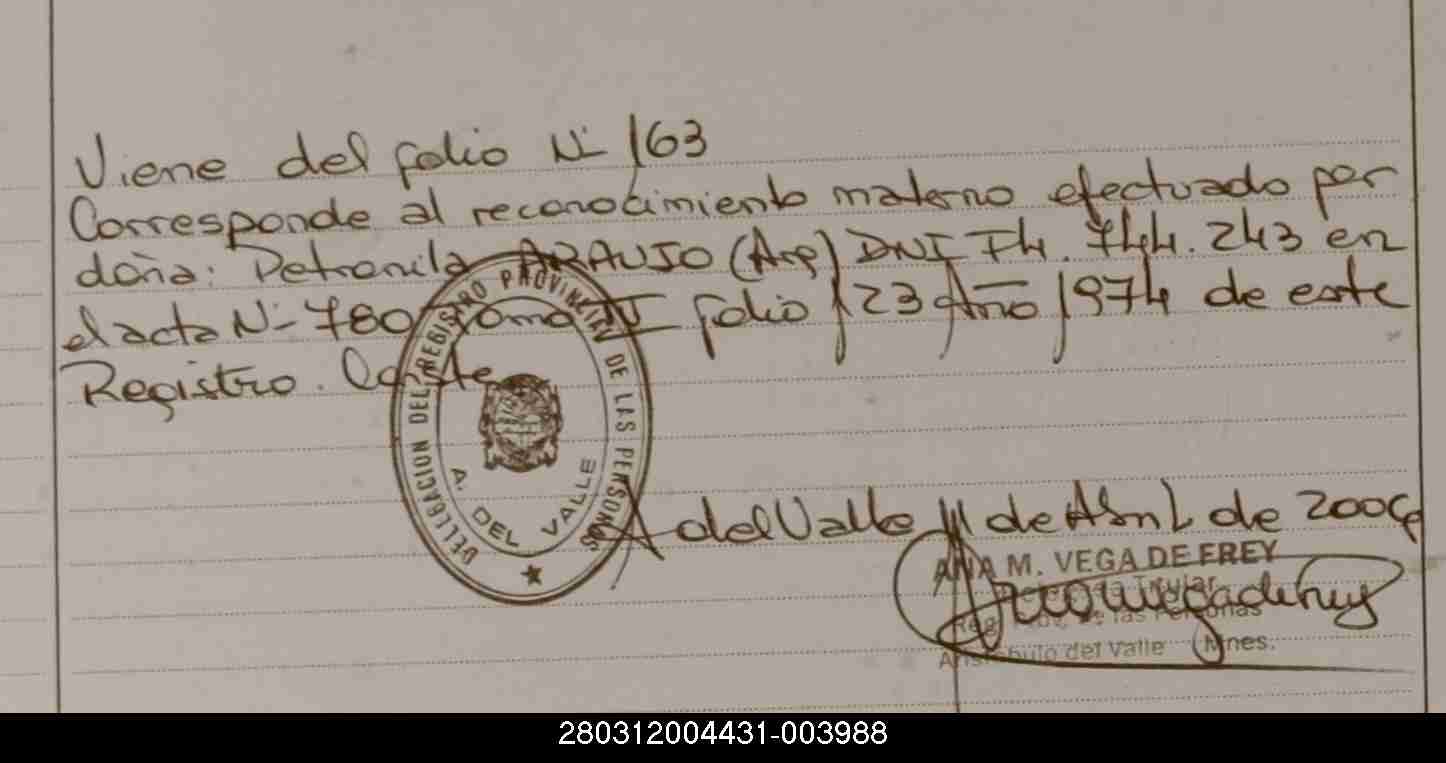 Viene del folio Nº 163
Corresponde al reconocimiento materno efectuado por
doña: Petronila ARAUJO (Arg) DNI F4.744.243 en
el acta Nº 780 Tomo IV folio 123 Año 1974 de este
Registro. Conste
DELEGACION DEL REGISTRO PROVINCIAL DE LAS PERSONAS
A. DEL VALLE
A del Valle 11 de Abril de 200
ANA M. VEGA DE FREY
Titular
Reg. Prov. de las Personas
Aristóbulo del Valle (Mnes.
280312004431-003988